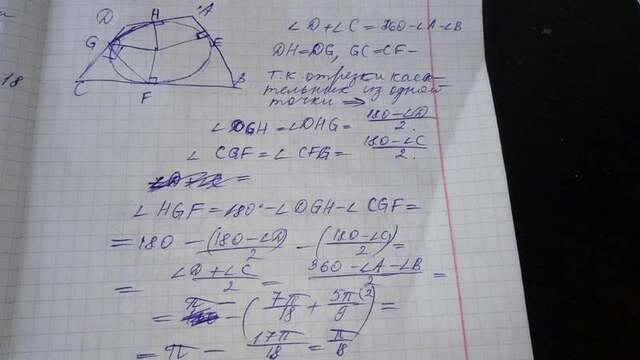 18
D H A
G E
C F B
∠D+∠C = 360-∠A-∠B
DH=DG, GC=CF-
т.к. отрезки каса-
тельных из одной
точки ⇒
∠DGH=∠DHG= (180-∠D)/2.
∠CGF=∠CFG= (180-∠C)/2.
∠HGF=180°-∠DGH-∠CGF=
=180 - (180-∠D)/2 - (180-∠C)/2 =
= (∠D+∠C)/2 = (360-∠A-∠B)/2 =
= π - (7π/18 + 5π/9(2) ) =
= π - 17π/18 = π/18